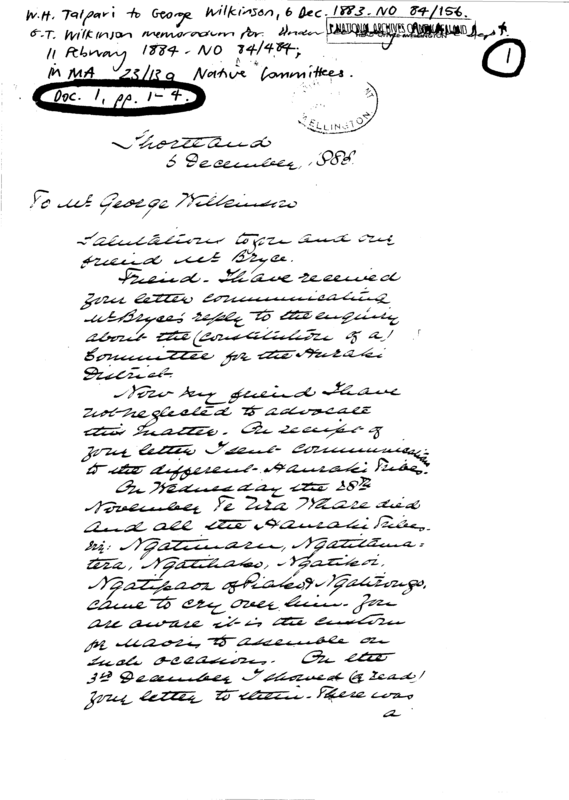 W.H. Talpari to George Wilkinson, 6 Dec. 1883. NO 84/156.
G.T. Wilkinson memorandum for Under
NATIONAL ARCHIVES
11 February 1884 - NO 84/484,
in MA 23/13a Native Committees.
1
Doc. 1, pp. 1-4.
WELLINGTON
Shortland
December, 188
To Mr George Wilkinson
Salutations to you and our
friend Mr Bryce.
Friend. I have received
your letter communicating
Mr Bryce's reply to the enquiry
about the (constitution of a)
Committee for the Hauraki
District.
Now my friend I have
not neglected to advocate
this matter. On receipt of
your letter I sent communication
to the different Hauraki Tribes.
On Wednesday the 28th
November Te Ura Whare died
and all the Hauraki Tribes.
viz: Ngatimaru, Ngatitama=
tera, Ngatihako, Ngatikoi,
Ngatipaoa of Piako &
came to cry over him. You
are aware it is the custom
for Maoris to assemble on
such occasions. On the
3rd December I showed (& read)
your letter to them. There was
a